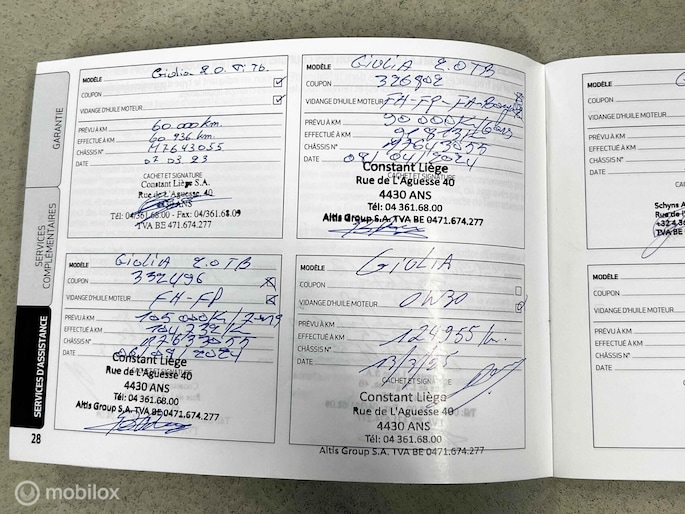 GARANTIE
SERVICES COMPLÉMENTAIRES
SERVICES D'ASSISTANCE
28
MODÈLE Giulia 2.0. Ti Tb.
COUPON
VIDANGE D'HUILE MOTEUR
PRÉVU À KM 60.000 km.
EFFECTUÉ À KM 60 936 km.
CHÂSSIS N° M7643055
DATE 07.03.23
CACHET ET SIGNATURE
Constant Liège S.A.
Rue de L'Aguesse, 40
ANS
Tél: 04/361.68.00 - Fax: 04/361.68.09
TVA BE 471.674.277
MODÈLE GIULIA 2.0TB
COUPON 326802
VIDANGE D'HUILE MOTEUR FH-FP-FA-
PRÉVU À KM 90000K/
EFFECTUÉ À KM
CHÂSSIS N°
DATE 09/04/2024
CACHET ET SIGNATURE
Constant Liège
Rue de L'Aguesse 40
4430 ANS
Tél: 04 361.68.00
Altis Group S.A. TVA BE 0471.674.277
MODÈLE GIULIA 2.0TB
COUPON 332496
VIDANGE D'HUILE MOTEUR FH-FP
PRÉVU À KM 105000K/
EFFECTUÉ À KM 104232/K
CHÂSSIS N°
DATE 06/09/2024
CACHET ET SIGNATURE
Constant Liège
Rue de L'Aguesse 40
4430 ANS
Tél: 04 361.68.00
Altis Group S.A. TVA BE 0471.674.277
MODÈLE GIULIA
COUPON
VIDANGE D'HUILE MOTEUR 0W30
PRÉVU À KM
EFFECTUÉ À KM 124955
CHÂSSIS N°
DATE
CACHET ET SIGNATURE
Constant Liège
Rue de L'Aguesse 40
4430 ANS
Tél: 04 361.68.00
Altis Group S.A. TVA BE 0471.674.277
MODÈLE
COUPON
VIDANGE D'HUILE MOTEUR
PRÉVU À KM
EFFECTUÉ À KM
CHÂSSIS N°
DATE
Schyns A
Rue de
TVA BE
MODÈLE
COUPON
VIDANGE D'HUILE MOTEUR
PRÉVU À KM
EFFECTUÉ À KM
CHÂSSIS N°
DATE
mobilox